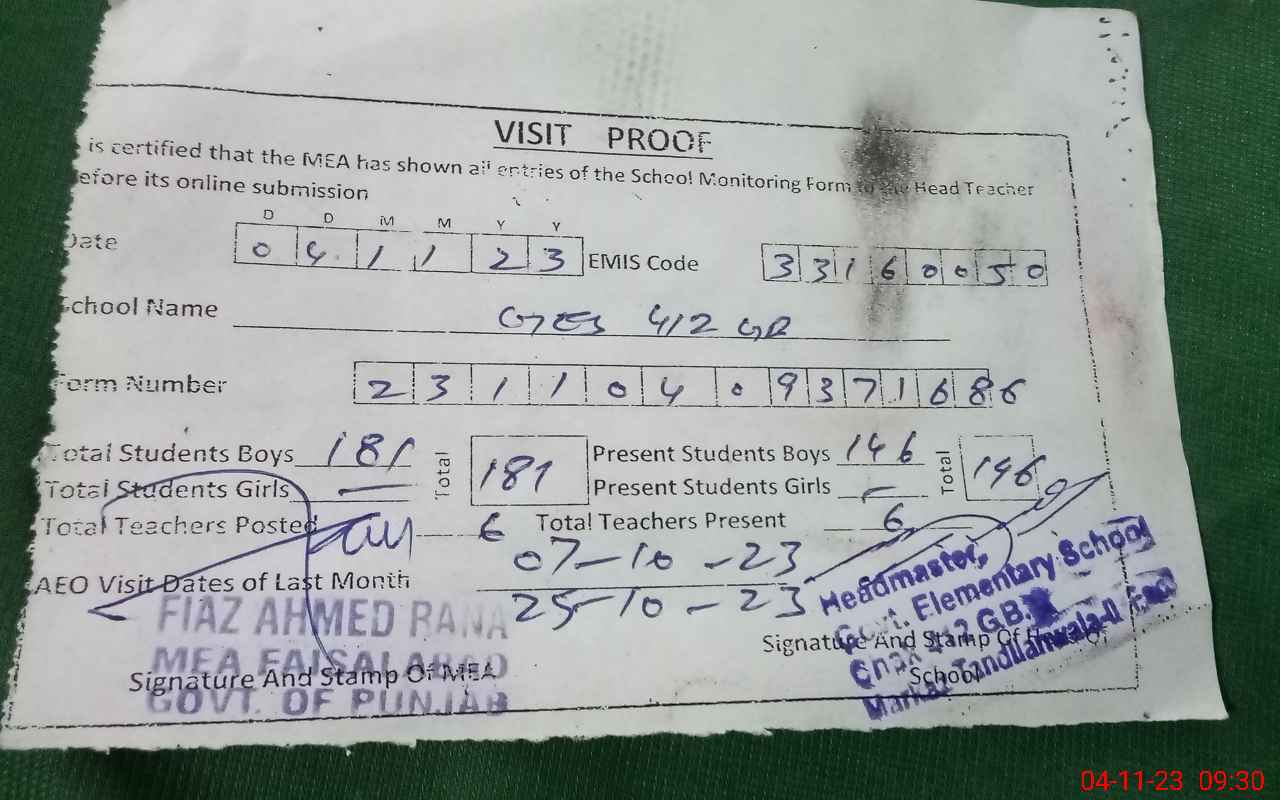 VISIT PROOF
is certified that the MEA has shown all entries of the School Monitoring Form to the Head Teacher
efore its online submission
D D M M Y Y
Date 0 4 1 1 2 3 EMIS Code 3 3 1 6 0 0 5 0
School Name GES 412 GB
Form Number 2 3 1 1 0 4 0 9 3 7 1 6 8 6
Total Students Boys 181 Total 181 Present Students Boys 146 Total 146
Total Students Girls — Present Students Girls —
Total Teachers Posted 6 Total Teachers Present 6
AEO Visit Dates of Last Month 07-10-23
25-10-23
FIAZ AHMED RANA
MEA FAISALABAD
GOVT. OF PUNJAB
Signature And Stamp Of MEA
Headmaster,
Govt. Elementary School
Chak 412 G.B.
Markaz Tandlianwala-II
Signature And Stamp Of Head Of
School
04-11-23 09:30